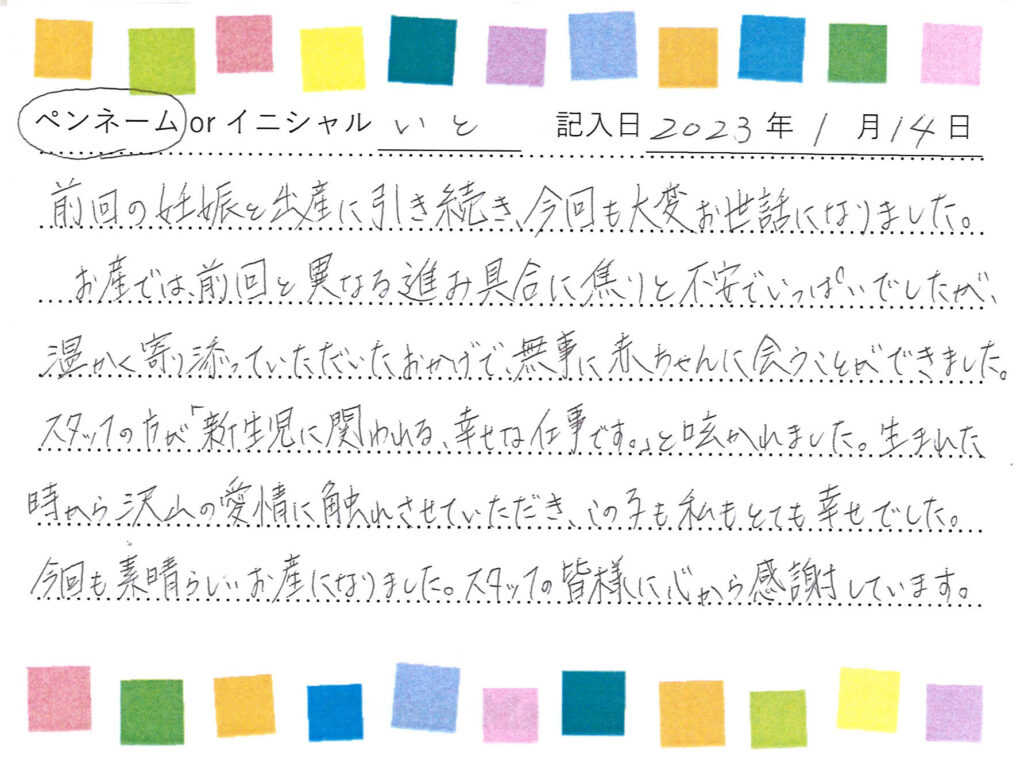 ペンネーム or イニシャル いと 記入日 2023 年 1 月 14 日
前回の妊娠と出産に引き続き、今回も大変お世話になりました。
お産では、前回と異なる進み具合に焦りと不安でいっぱいでしたが、
温かく寄り添っていただいたおかげで、無事に赤ちゃんに会うことができました。
スタッフの方が「新生児に関われる、幸せな仕事です。」と呟かれました。生まれた
時から沢山の愛情に触れさせていただき、この子も私もとても幸せでした。
今回も素晴らしいお産になりました。スタッフの皆様に心から感謝しています。